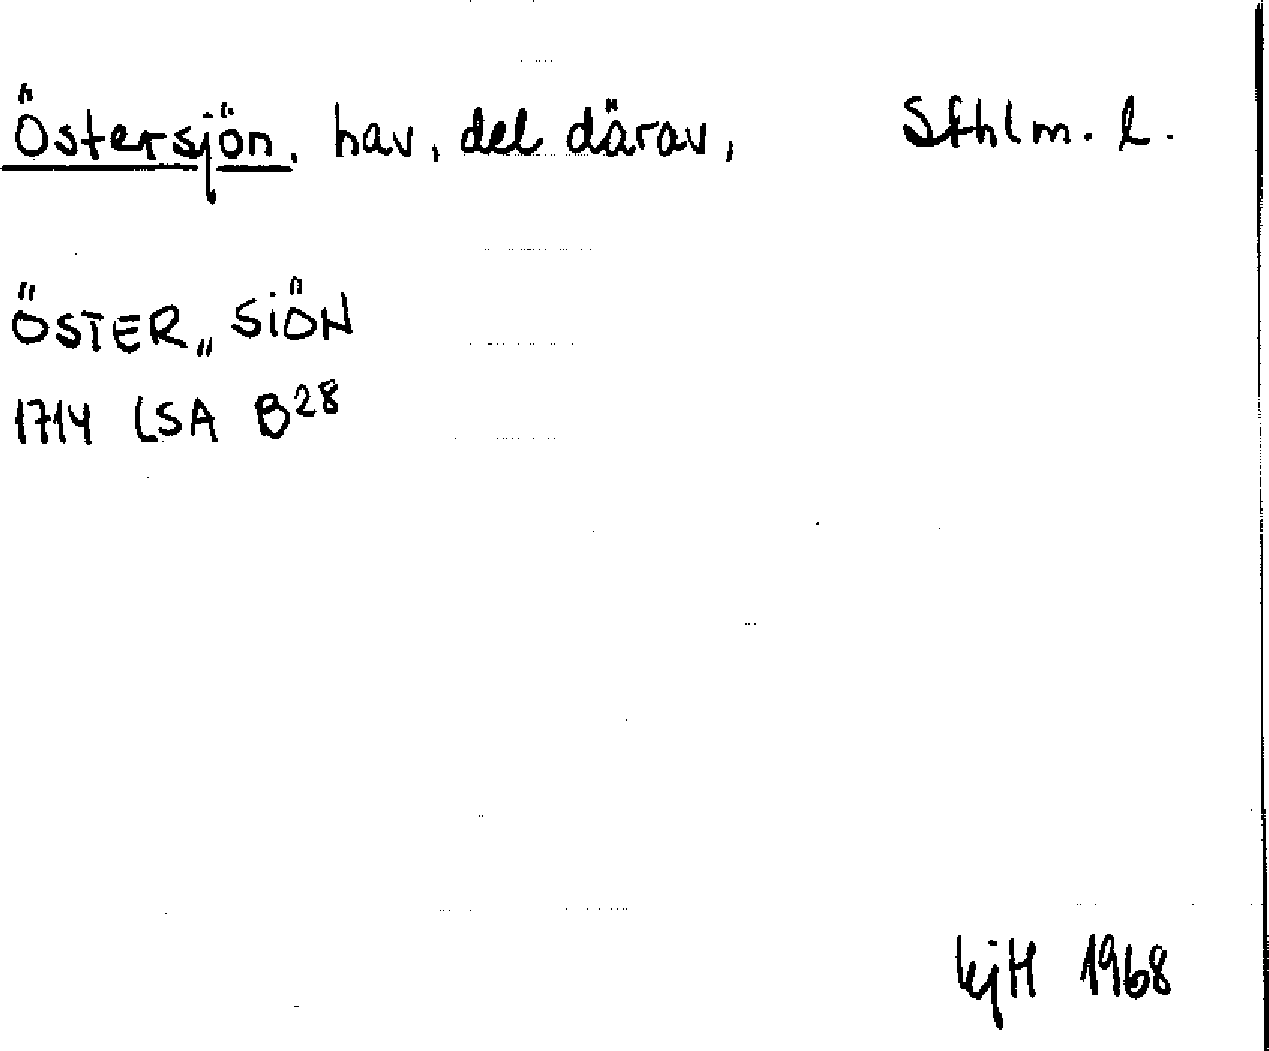 Östersjön, hav, del därav, Sthlm. l.
ÖSTER„ SIÖN
1714 LSA B28
kjH 1968